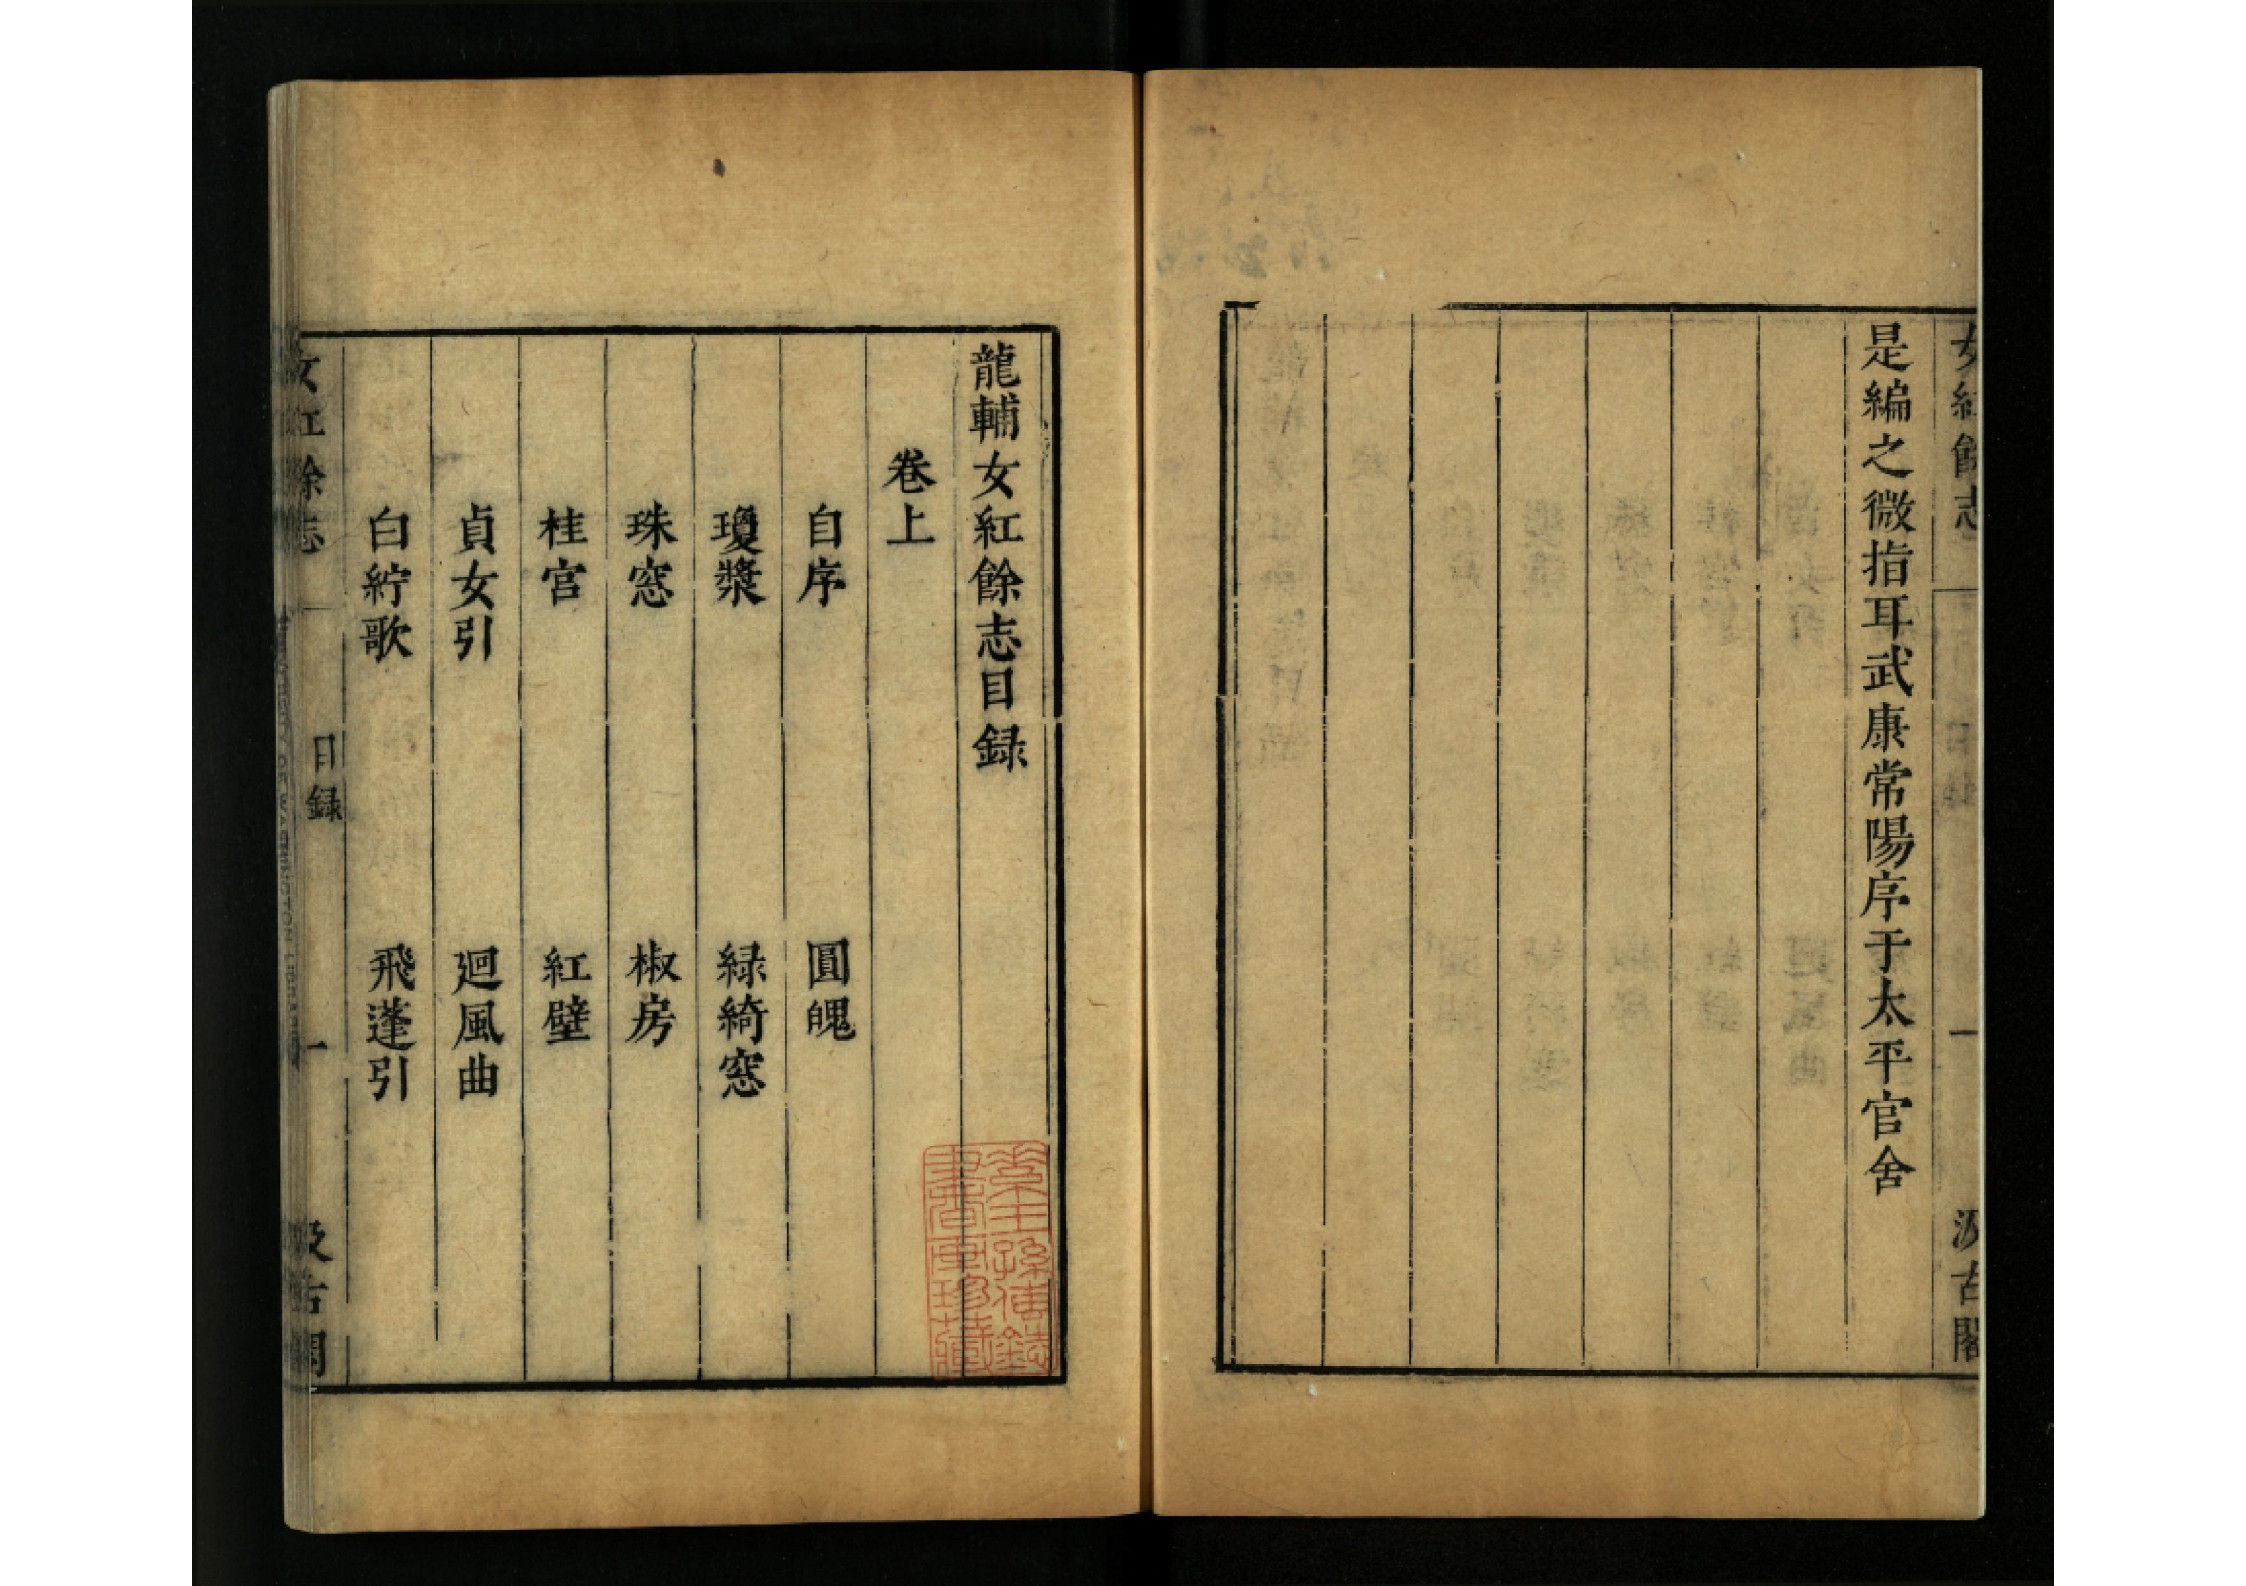 女紅餘志
一
汲古閣
是編之微指耳武康常陽序于太平官舍
龍輔女紅餘志目録
卷上
自序
圓魄
瓊漿
緑綺窓
珠窓
椒房
桂宮
紅壁
貞女引
廻風曲
白紵歌
飛蓬引
女紅餘志
目録
一
汲古閣